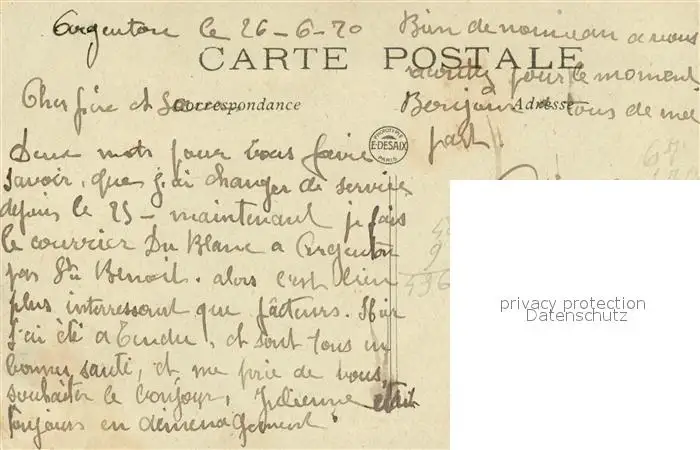 Argenton le 26-6-20
CARTE POSTALE
Correspondance
Adresse
Cher frère et Sœur
Deux mots pour vous faire
savoir, que j'ai changer de service
depuis le 25 - maintenant je fais
le courrier Du Blanc a Argenton
par St Benoit. alors c'est bien
plus interressant que fâcteurs. Hier
j'ai été a Tendu, et sont tous en
bonne santé, et me prie de vous
souhaiter le bonjour, Julienne était
toujours en démenagement.
Bien de nouveau a vous
raconter pour le moment
Bonjour à tous de ma
part.
PHOTOTYPIE
E. DESAIX
PARIS
privacy protection
Datenschutz